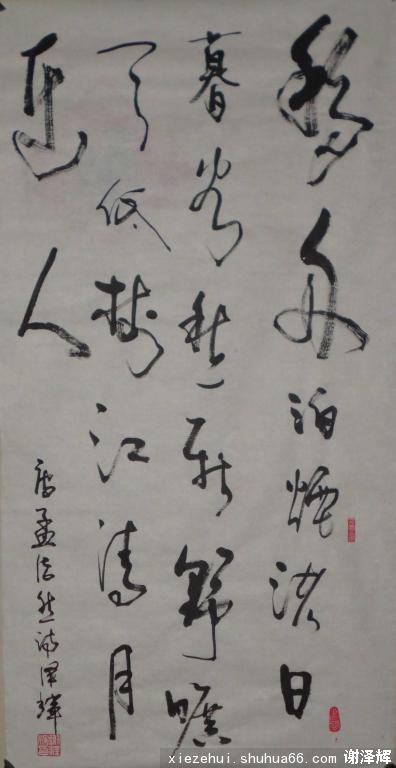 移舟泊煙渚日
暮客愁新野曠
天低樹江清月
近人
唐孟浩然詩澤輝
xiezehui.shuhua66.com 谢泽辉